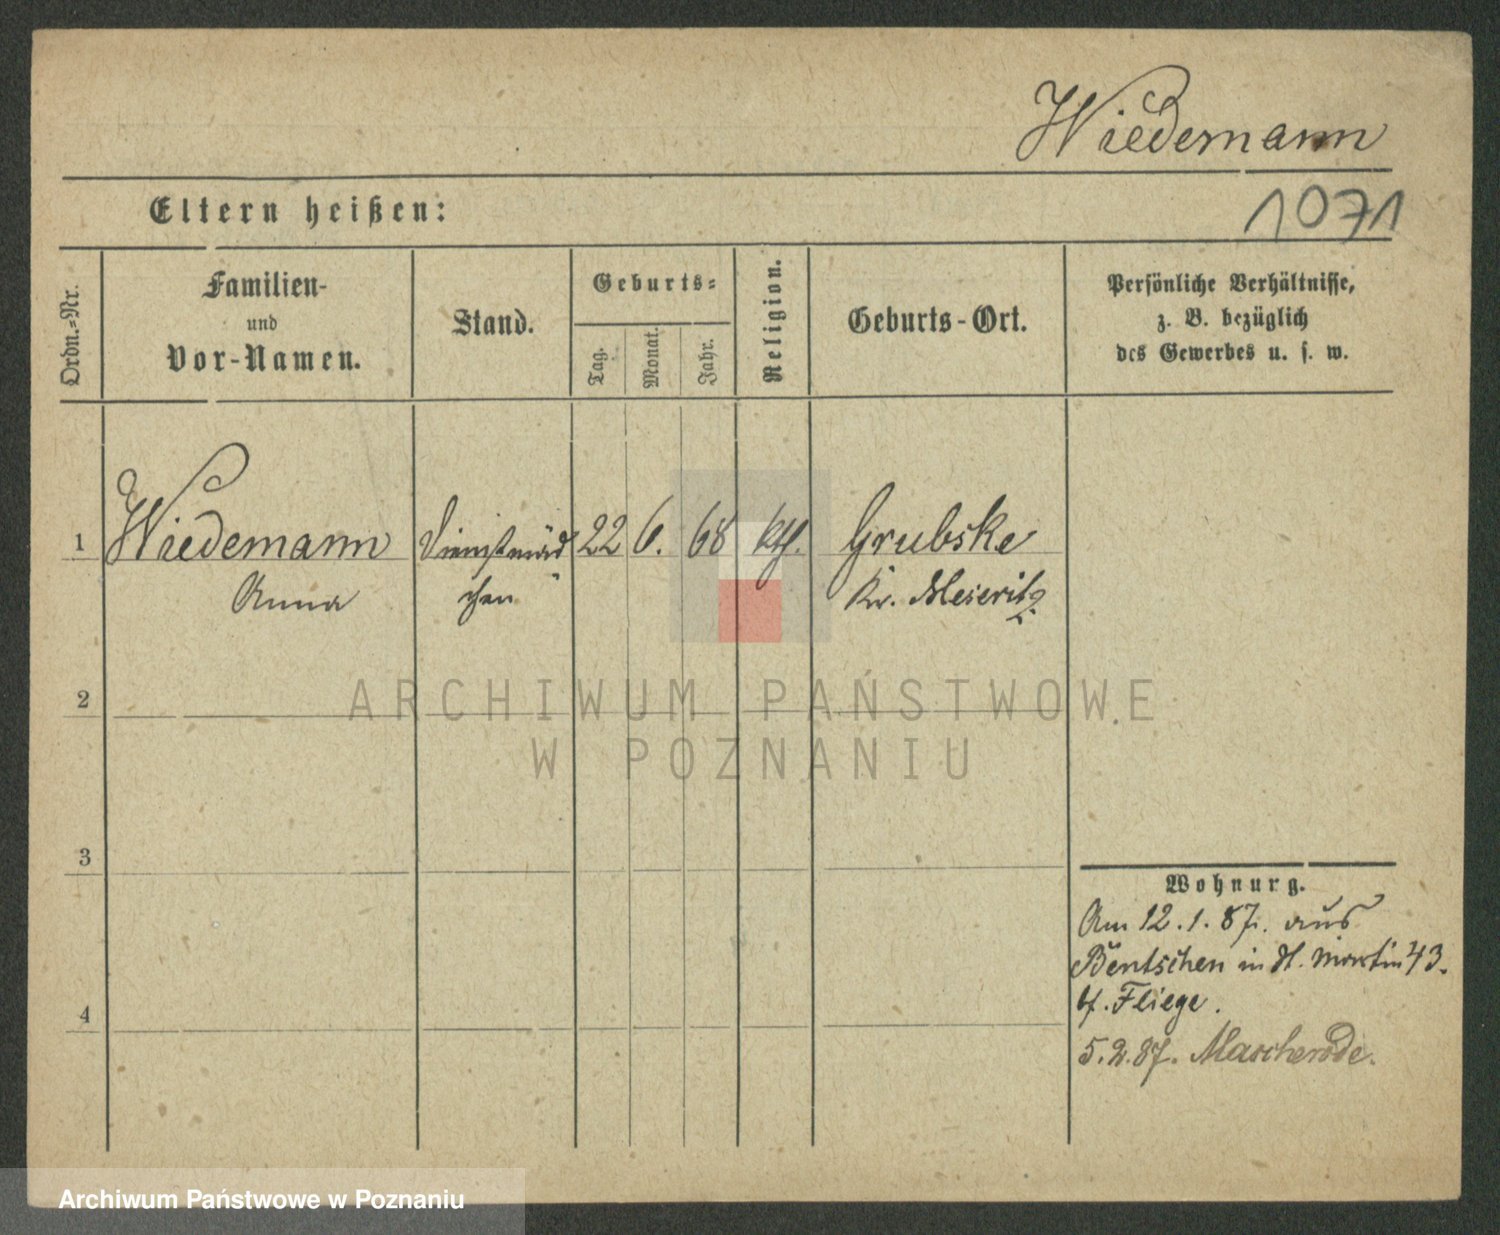 Wiedemann
Eltern heißen:
1071
Ordn.=Nr.
Familien-
und
Vor-Namen.
Stand.
Geburts=
Tag.
Monat.
Jahr.
Religion.
Geburts-Ort.
Persönliche Verhältnisse,
z. B. bezüglich
des Gewerbes u. s. w.
1
Wiedemann
Anna
Dienstmäd
chen
22
6.
68
kth.
Grubske
Kr. Meseritz
ARCHIWUM PAŃSTWOWE
W POZNANIU
2
3
4
Wohnung.
Am 12.1.87. aus
Bentschen in St. Martin 43.
b/. Fliege.
5.2.87.
Archiwum Państwowe w Poznaniu